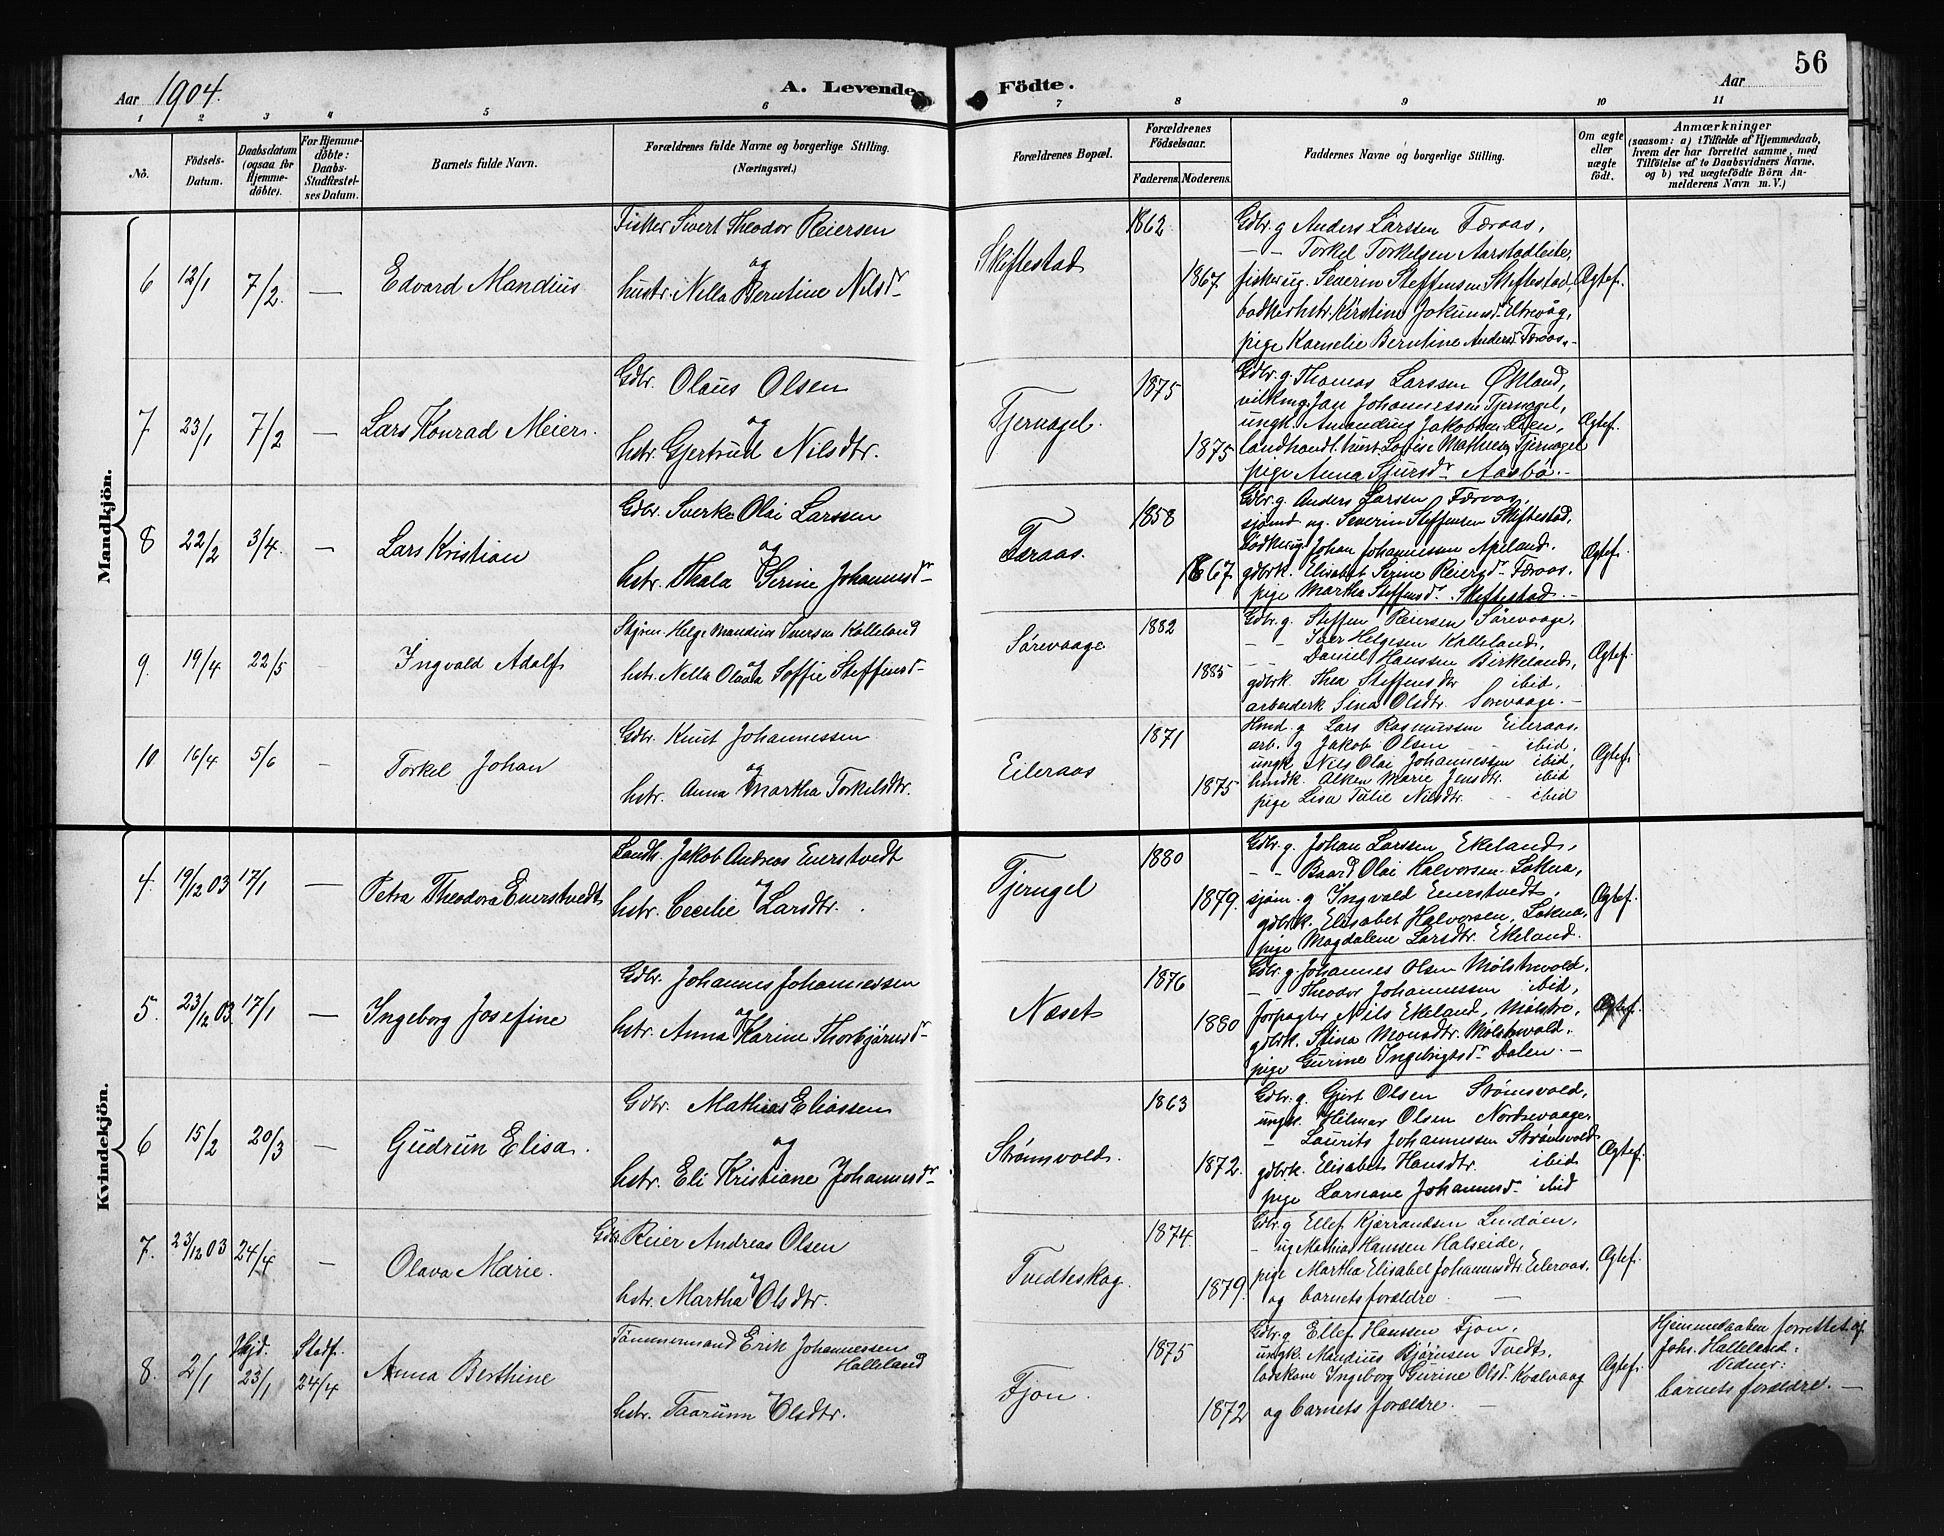 56
Aar 1904.
A. Levende Födte.
Aar
1 2 3 4 5 6 7 8 9 10 11
No.
Födsels-Datum.
Daabsdatum (ogsaa for Hjemme-döbte).
For Hjemme-döbte: Daabs-Stadfæstel-ses Datum.
Barnets fulde Navn.
Forældrenes fulde Navne og borgerlige Stilling. (Næringsvei.)
Forældrenes Bopæl.
Forældrenes Födselsaar.
Faderens. Moderens.
Faddernes Navne og borgerlige Stilling.
Om ægte eller uægte födt.
Anmærkninger
(saasom: a) i Tilfælde af Hjemmedaab, hvem der har forrettet samme, med Tilföielse af to Daabsvidners Navne, og b) ved uægtefödte Börn An-melderens Navn m. V.)
Mandkjön.
6 12/1 7/2. — Edvard Mandius
Fisker Sivert Theodor Reiersen
og
hustr. Nella Berntine Nilsdr
Skeftestad
1862
1867.
Gdbr. g Anders Larssen Færaas,
— - Torkel Torkelsen Aarstadleite,
fisker ug. Severin Steffensen Skeftestad,
bødkerhstr. Kirstine Jokumsdr Eltrevåg,
pige Kornelie Berntine Andersdr Færaas.-
Ægtef.
7 23/1 7/2 — Lars Konrad Meier.
Gdbr. Olaus Olsen
og
hstr. Gjertrud Nilsdtr.
Tjernagel.
1875
1875
Gdbr. g. Thomas Larssen Økland,
Jan Johannessen Tjernagel,
ungk. Amandus Jakobsen Løen,
landhandl. hust. Lovise Mathiesen Tjernagel
pige Anna Sjursdr Aasbø.-
Ægtef.
8 22/2 3/4. — Lars Kristian
Gdbr. Sverke Olai Larssen
og
hstr. Thala Serine Johannesdr
Færaas.
1858
1867.
Gdbr. g. Anders Larsen Færaas,
sjømd ug. Severin Steffensen Skeftestad,
Bødker ug. Johan Johannessen Apeland.
gdbrk. Elisabet Serine Reiersdr Færaas,
pige Martha Steffensdr Skeftestad.-
Ægtef.
9. 19/4 22/5 - Ingvald Adolf
Styrm. Helge Mandius Iversen Kalleland
og
hstr. Nella Olava Soffie Steffensdr
Sørevaage
1882
1885
Gdbr. g. Steffen Reiersen Sørevaage,
- - Iver Helgesen Kalleland,
- - Daniel Hanssen Birkeland,
gdbrk. Thea Steffensdtr ibid,
arbeiderk Sina Olsdtr. Sørevaage.-
Ægtef.
10 16/4 5/6 - Torkel Johan
Gdbr. Knut Johannessen
og
hstr. Anna Martha Torkelsdtr.
Eileraas
1871
1875
Hmd. g Lars Rasmussen Eileraas.
arb. g Jakob Olsen - - ibid.
ungk. Nils Olai Johannessen ibid,
hmdk. Alken Marie Jensdtr. ibid
pige Lisa Talie Nilsdtr. - ibid
Ægtef.
Kvindekjön.
4. 19/12 03 17/1 — Petra Theodora Enerstvedt
Landh. Jakob Andreas Enerstvedt
og
hstr. Cecilie Larsdtr.
Tjerngel
1880
1879.
Gdbr. g. Johan Larssen Ekeland,
- - Baard Olai Halvorsen Løkna,
sjøm. g Ingvald Enerstvedt,
gdbrk. Elisabet Halvorsen, Løkna,
pige Magdalene Larsdtr. Ekeland.
Ægtef.
5. 23/12 03 17/1 — Ingeborg Josefine
Gdbr. Johannes Johannessen
og
hstr. Anna Karine Thorbjørnsdr
Næset
1876
1880
Gdbr. g. Johannes Olsen Mølstrevold,
- Theodor Johannessen ibid,
forpagter Nils Ekeland, Mølstre,
gdbrk. Stina Monsdtr. Mølstrevold.
pige Gurine Ingebrigtsdr Dalen.-
Ægtef.
6 15/2 20/3 — Gudrun Elisa.
Gdbr. Mathias Eliassen
og
hstr. Eli Kristiane Johannesdr
Strømsvold.
1863
1872.
Gdbr. g. Gjert Olsen Strømsvold,
ungk. Hilmar Olsen Nordrevaage,
- Laurits Johannessen Strømsvold
gdbrk. Elisabet Hansdtr. ibid
pige Larseane Johannesdr ibid
Ægtef.
7. 23/12 03 24/4 — Olava Marie.
Gdbr. Reier Andreas Olsen
og
hstr. Martha Olsdtr.
Tvedteskog.
1874.
1879.
Gdbr. g Ellef Kjærrandsen Lindøen,
- ug Mathias Hanssen Halseide,
pige Martha Elisabet Johannesdtr. Eileraas,
og barnets forældre. —
Ægtef.
8. 2/1 Hjd. 23/1 Stadf. 24/4 Anna Berthine
Tømmermand Erik Johannessen Halleland
og
hstr. Taarunn Olsdtr.
Fjon.
1875
1872
Gdbr. g Ellef Hanssen Fjon,
ungk. Mandius Bjørnsen Tvedt,
Ingeborg Gurine Olsdr Kvalvaag
og barnets forældre. -
Ægtef.
Hjemmedaaben forrettet af
Johs. Halleland.
Vidner:
barnets forældre. —